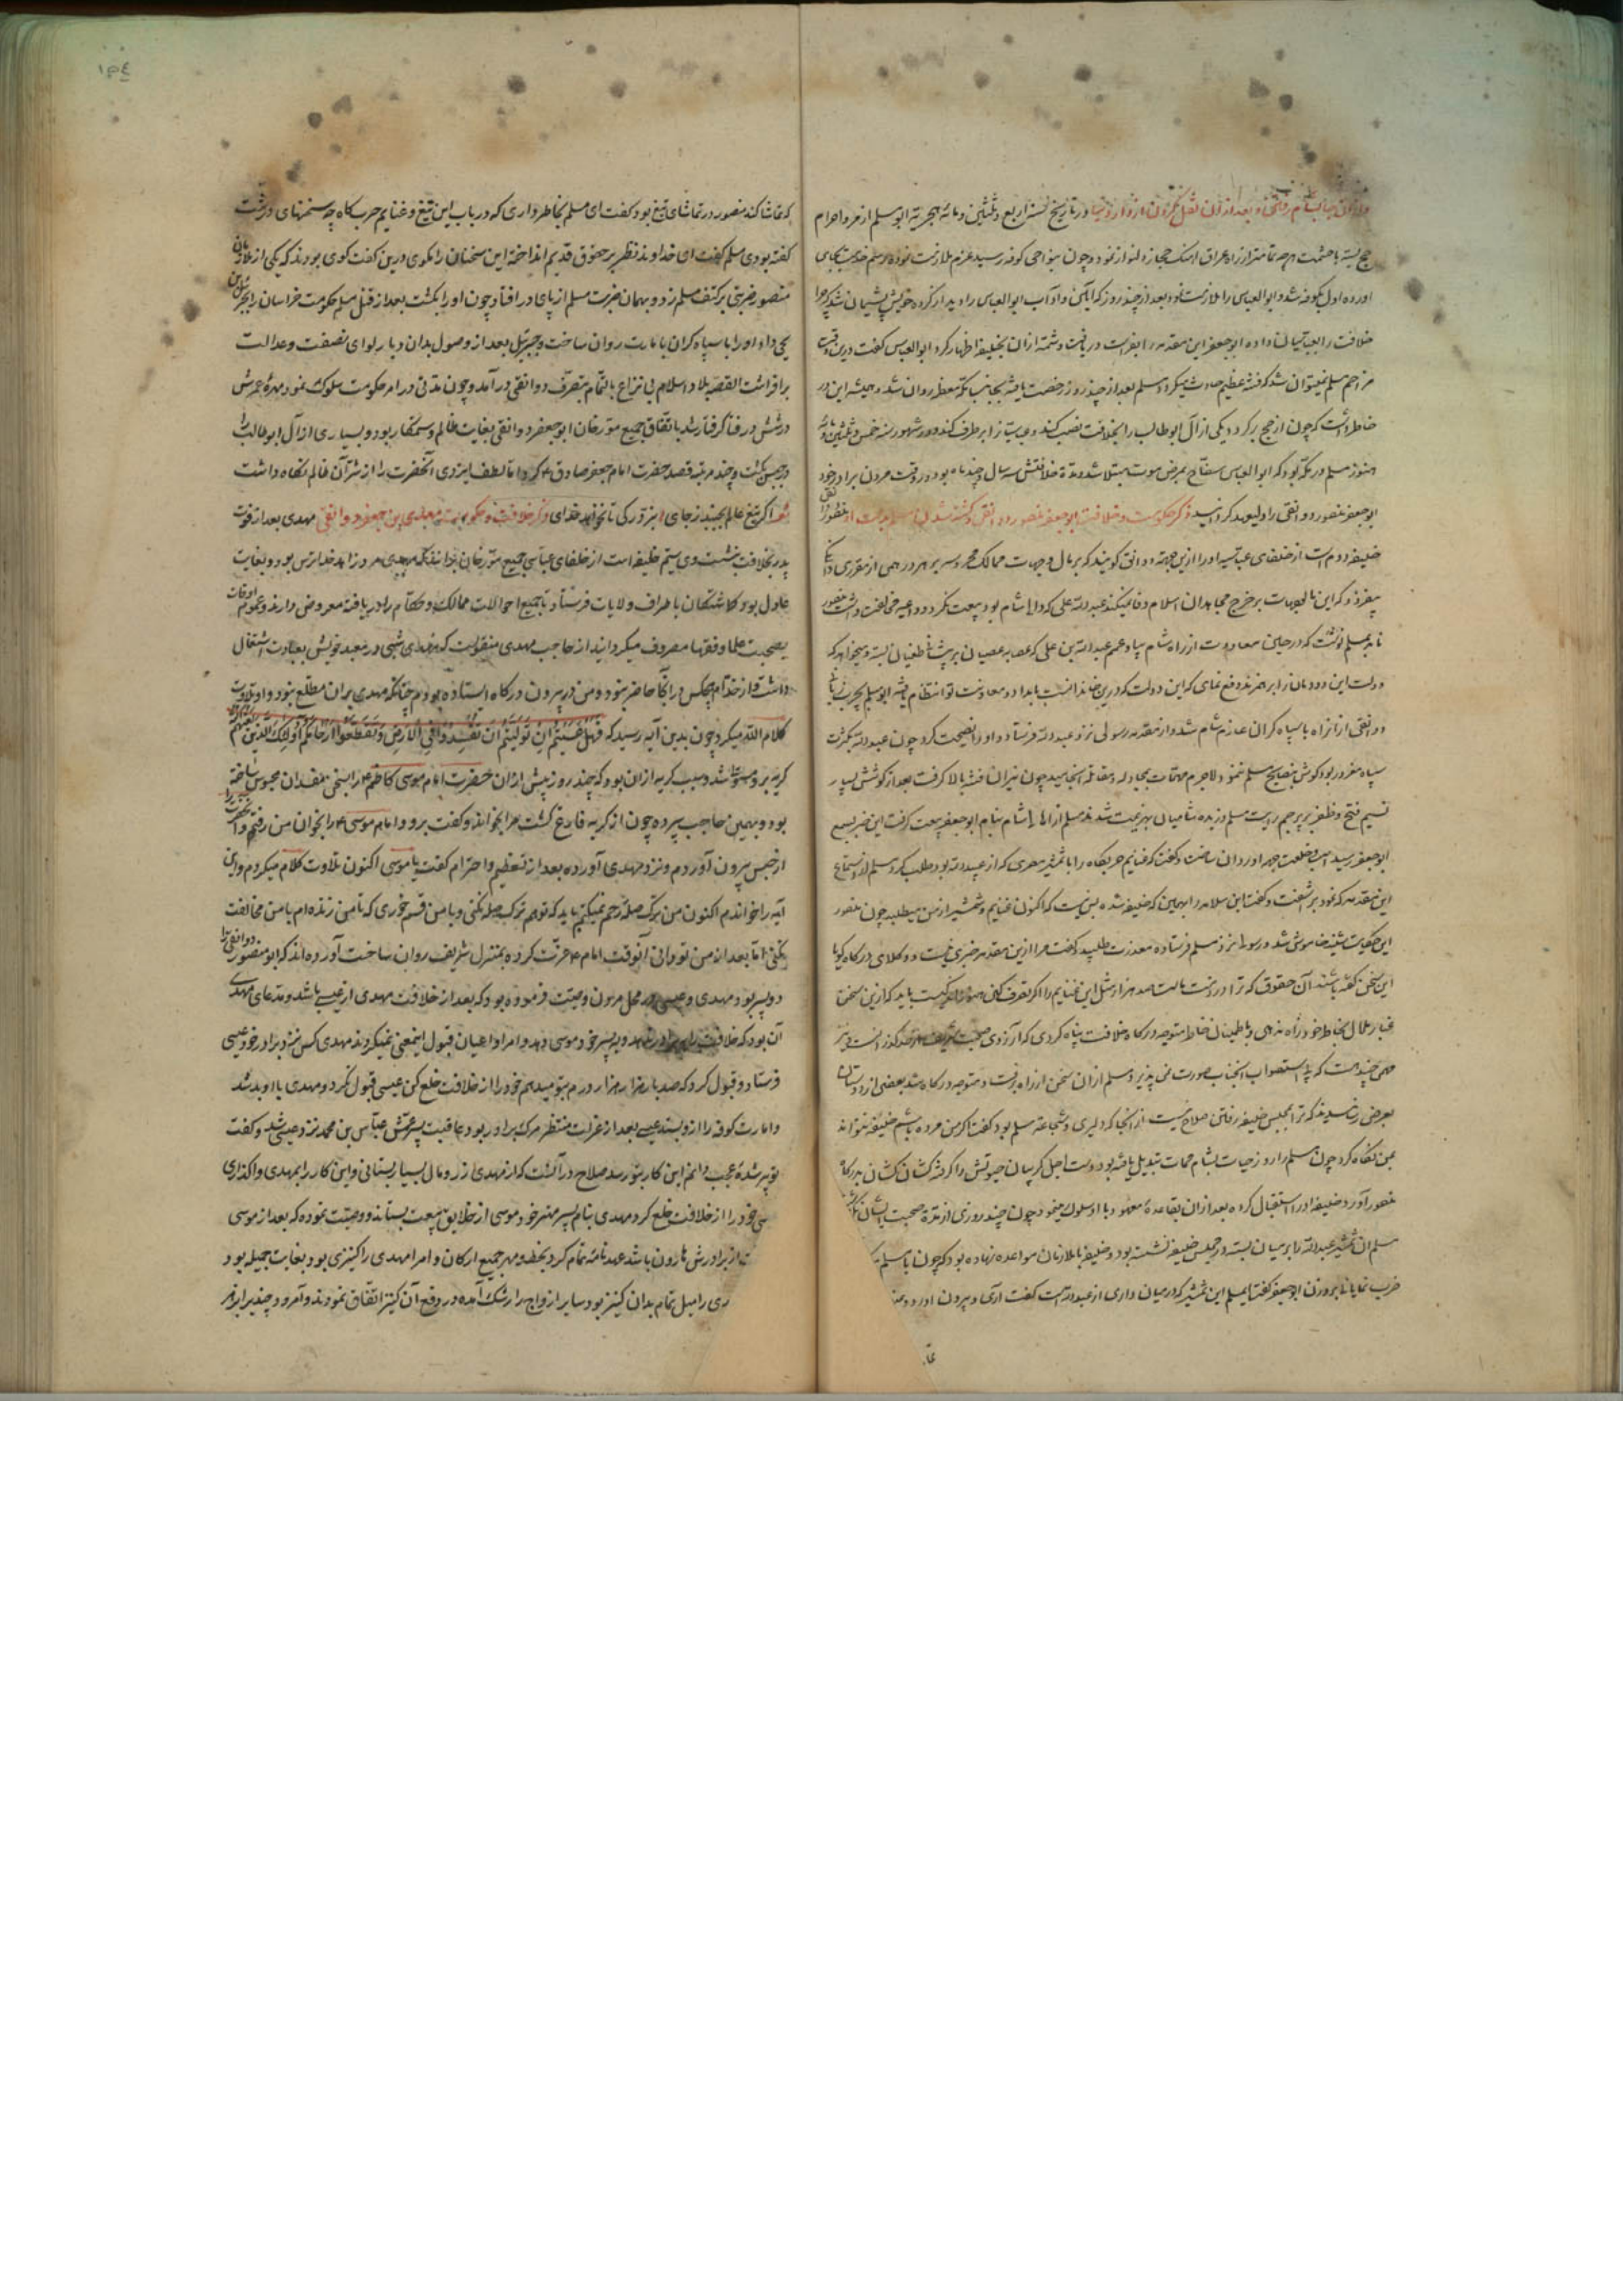 در تاریخ سنه اربع و ثلثین و مائه هجریه ابو مسلم از مرو احرام
حج بسته با حشمت هرچه تمامتر از راه عراق آهنگ حجاز نمود و چون بنواحی کوفه رسید عزم ملازمت نموده
آورده اول بکوفه شد و ابو العباس را ملازمت نمود بعد از چند روز که ابو العباس را دید از کرده خویش پشیمان شد که چرا
خلافت را بعباسیان داده ابو جعفر این مقدمه را بفراست دریافت و شمه از آن بخلیفه اظهار کرد ابو العباس گفت درین وقت
مزاحم مسلم نمیتوان شد که فتنه عظیم حادث میگردد مسلم بعد از چند روز رخصت یافته بجانب مکه معظمه روان شد و همیشه این در
خاطر داشت که چون از حج برگردد یکی از آل ابوطالب را بخلافت نصب کند و عباسیان را برطرف کند و در شهور سنه خمس و ثلثین و مائه
هنوز مسلم در مکه بود که ابو العباس سفاح بمرض موت مبتلا شد و مدة خلافتش سه سال و چند ماه بود و در وقت مردن برادر خود
ابو جعفر منصور دوانقی را ولیعهد گردانید ذکر حکومت و خلافت ابو جعفر منصور دوانقی و کشته شدن مسلم بدست او منصور
خلیفه دوم است از خلفای عباسیه او را ازین جهة دوانقی گویند که بر مال و جهات ممالک محروسه بر هر درهمی از مقرری دانگی
بیفزود که این مالوجهات بر خرج مجاهدان اسلام وفا نمیکند عبد الله علی که والی شام بود بیعت نکرد و داعیه مخالفت داشت منصور
نامه بمسلم نوشت که در حین معاودت از راه شام بیا و عمم عبد الله بن علی که عصابه عصیان بر پیشانی طغیان بسته و میخواهد که
دولت این دودمان را بر هم زند دفع نمای که این دولت که درین خاندانست بامداد و معاونت تو انتظام یافته ابو مسلم بحرب
دوانقی از آنراه با سپاه گران عازم شام شد و از مقدمه رسولی نزد عبد الله فرستاد و او را نصیحت کرد چون عبد الله بکثرت
سپاه مغرور بود گوش بنصایح مسلم ننمود لاجرم مهمات بمجادله و مقاتله انجامید چون نیران فتنه بالا گرفت بعد از کوشش بسیار
نسیم فتح و ظفر بر پرچم رایت مسلم وزیده شامیان بهزیمت شدند مسلم از اهالی شام بنام ابو جعفر بیعت گرفت این خبر بسمع
ابو جعفر رسید اسب و خلعت بهر او روان ساخت و گفت که غنایم حربگاه را با شمشیر مصری که از عبد الله بود طلب کرد مسلم از استماع
این مقدمه که نمود برآشفت و گفت ابن سلامه را ببینین که خلیفه شده بس نیست که اکنون غنایم و شمشیر از من میطلبد چون منصور
این حکایت شنید خاموش شد و رسول نزد مسلم فرستاده معذرت طلبید و گفت مرا ازین مقدمه خبری نیست و وکلای درگاه گویا
این سخن گفته باشند آن حقوق که ترا در ذمت ماست صد هزار مثل این غنایم را اگر تصرف کنی هنوز اندکیست باید که ازین سخن
غبار ملال بخاطر خود راه ندهی و باطمینان خاطر متوجه درگاه خلافت پناه گردی که آرزوی صحبت شریف از حد گذر است و نیز
مهمی چند هست که بی استصواب آنجناب صورت نمی پذیرد مسلم از آن سخن از راه برفت و متوجه درگاه شد بعضی از دوستان
بعرض رسانیدند که ترا بمجلس خلیفه رفتن صلاح نیست از آنجا که دلیری و شجاعة مسلم بود گفت اگر من مرده باشم خلیفه نتواند
بمن نگاه کرد چون مسلم را روز حیات بشام ممات تبدیل یافته بود دست اجل گریبان حیوتش را گرفته کشان کشان بدرگاه
منصور آورد خلیفه او را استقبال کرده بعد از آن بقاعدة معهود با او سلوک مینمود چون چند روزی از مدة صحبت ایشان بگذشت
مسلم آن شمشیر عبد الله را بر میان بسته در مجلس خلیفه نشسته بود و خلیفه با ملازمان مواعده نهاده بود که چون با مسلم
ابو جعفر گفت ایمسلم این شمشیر که در میان داری از عبد الله است گفت آری و بیرون آورد و
۱۵٤
که تماشا کند منصور در تماشای تیغ بود گفت ای مسلم بخاطر داری که در باب این تیغ و غنایم حربگاه چه سخنهای درشت
گفته بودی مسلم گفت ای خداوند نظر بر حقوق قدیم انداخته این سخنان را مگوی درین گفت گوی بودند که یکی از ملازمان
منصور ضربتی بر کتف مسلم زد و بهمان ضربت مسلم از پای در افتاد و چون او را بکشت بعد از قتل مسلم حکومت خراسان را بجبرئیل بن
یحیی داد و او را با سپاه گران بامارت روان ساخت و جبرئیل بعد از وصول بدان دیار لوای نصفت و عدالت
برافراشت القصه بلاد اسلام بی نزاع بالتمام بتصرف دوانقی درآمد و چون مدتی در امر حکومت سلوک نمود مهرۀ عمرش
در شش در فنا گرفتار شد باتفاق جمیع مورخان ابو جعفر دوانقی بغایت ظالم و ستمکار بود و بسیاری از آل ابوطالب را
در حبس بکشت و چند مرتبه قصد حضرت امام جعفر صادق ع کرد اما لطف ایزدی آنحضرت را از شر آن ظالم نگاه داشت
شعر اگر تیغ عالم بجنبد ز جای نبرد رگی تا نخواهد خدای ذکر خلافت و حکومت مهدی بن جعفر دوانقی مهدی بعد از فوت
پدر بخلافت بنشست وی سیم خلیفه است از خلفای عباسی جمیع مورخان برآنند که مهدی مرد زاهد خداترس بود و بغایت
عادل بود و گماشتگان باطراف ولایات فرستاد تا جمیع احوالات ممالک و حکام را دریافته معروض دارند و عموم اوقات
بصحبت علما و فقها مصروف میگردانید از حاجب مهدی منقولست که مهدی شبی در معبد خویش بعبادت اشتغال
داشت و از خدام هیچکس در آنجا حاضر نبود و من در بیرون درگاه ایستاده بودم چنانکه مهدی بر آن مطلع نبود و او تلاوت
کلام الله میکرد چون بدین آیه رسید که فهل عسیتم ان تولیتم ان تفسدوا فی الارض و تقطعوا ارحامکم اولئک الذین لعنهم الله
گریه برو مستولی شد و سبب گریه از آن بود که چند روز پیش از آن حضرت امام موسی کاظم ع را بسخن مفسدان محبوس ساخته
بود و بهمین حاجب سپرده چون از گریه فارغ گشت مرا بخواند و گفت برو و امام موسی ع را بخوان من رفتم و آنحضرت را
از حبس بیرون آوردم و نزد مهدی آورده بعد از تعظیم و احترام گفت یا موسی اکنون تلاوت کلام میکردم و این
آیه را خواندم اکنون من بترک صلۀ رحم نمیکنم باید که تو هم ترک صله نکنی و با من قسم خوری که تا من زنده ام با من مخالفت
نکنی اما بعد از من تو دانی آنوقت امام ع را عزت کرده بمنزل شریف روان ساخت آورده اند که ابو منصور دوانقی را
دو پسر بود مهدی و عیسی و در محل مردن وصیت فرموده بود که بعد از خلافت مهدی از عیسی باشد و مدعای مهدی
آن بود که خلافت را به پسر خود موسی دهد و امرا و اعیان قبول اینمعنی نمیکردند مهدی کس نزد برادر خود عیسی
فرستاد و قبول کرد که صد بار هزار هزار درم بتو میدهم خود را از خلافت خلع کن عیسی قبول نکرد و مهدی با او بد شد
و امارت کوفه را ازو بستد عیسی بعد از عزلت منتظر مرگ برادر بود عاقبت پسر عمش عباس بن محمد نزد عیسی شد و گفت
تو پیر شدۀ عجب دانم این کار بتو رسد صلاح در آنست که از مهدی زر و مال بسیار بستانی و این کار را بمهدی واگذاری
خود را از خلافت خلع کرد مهدی بنام پسر مهتر خود موسی از خلایق بیعت بستاند و وصیت نموده که بعد از موسی
از برادرش هارون باشد عهدنامه تمام کرد بخط و مهر جمیع ارکان و امرا مهدی را کنیزی بود بغایت جمیله بود
را میل تمام بدان کنیز بود سایر ازواج را رشک آمده در دفع آن کنیز اتفاق نمودند و امرود چند بر ابر